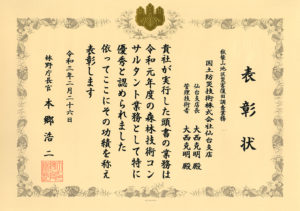 表彰状
国土防災技術株式会社仙台支店
仙台支店長 大西克明殿
管理技術者 大西克明殿
貴社が実行した頭書の業務は
令和元年度の森林技術コン
サルタント業務として特に
優秀と認められました
依ってここにその功績を称え
表彰します
令和二年二月二十六日
林野庁長官 本郷浩二